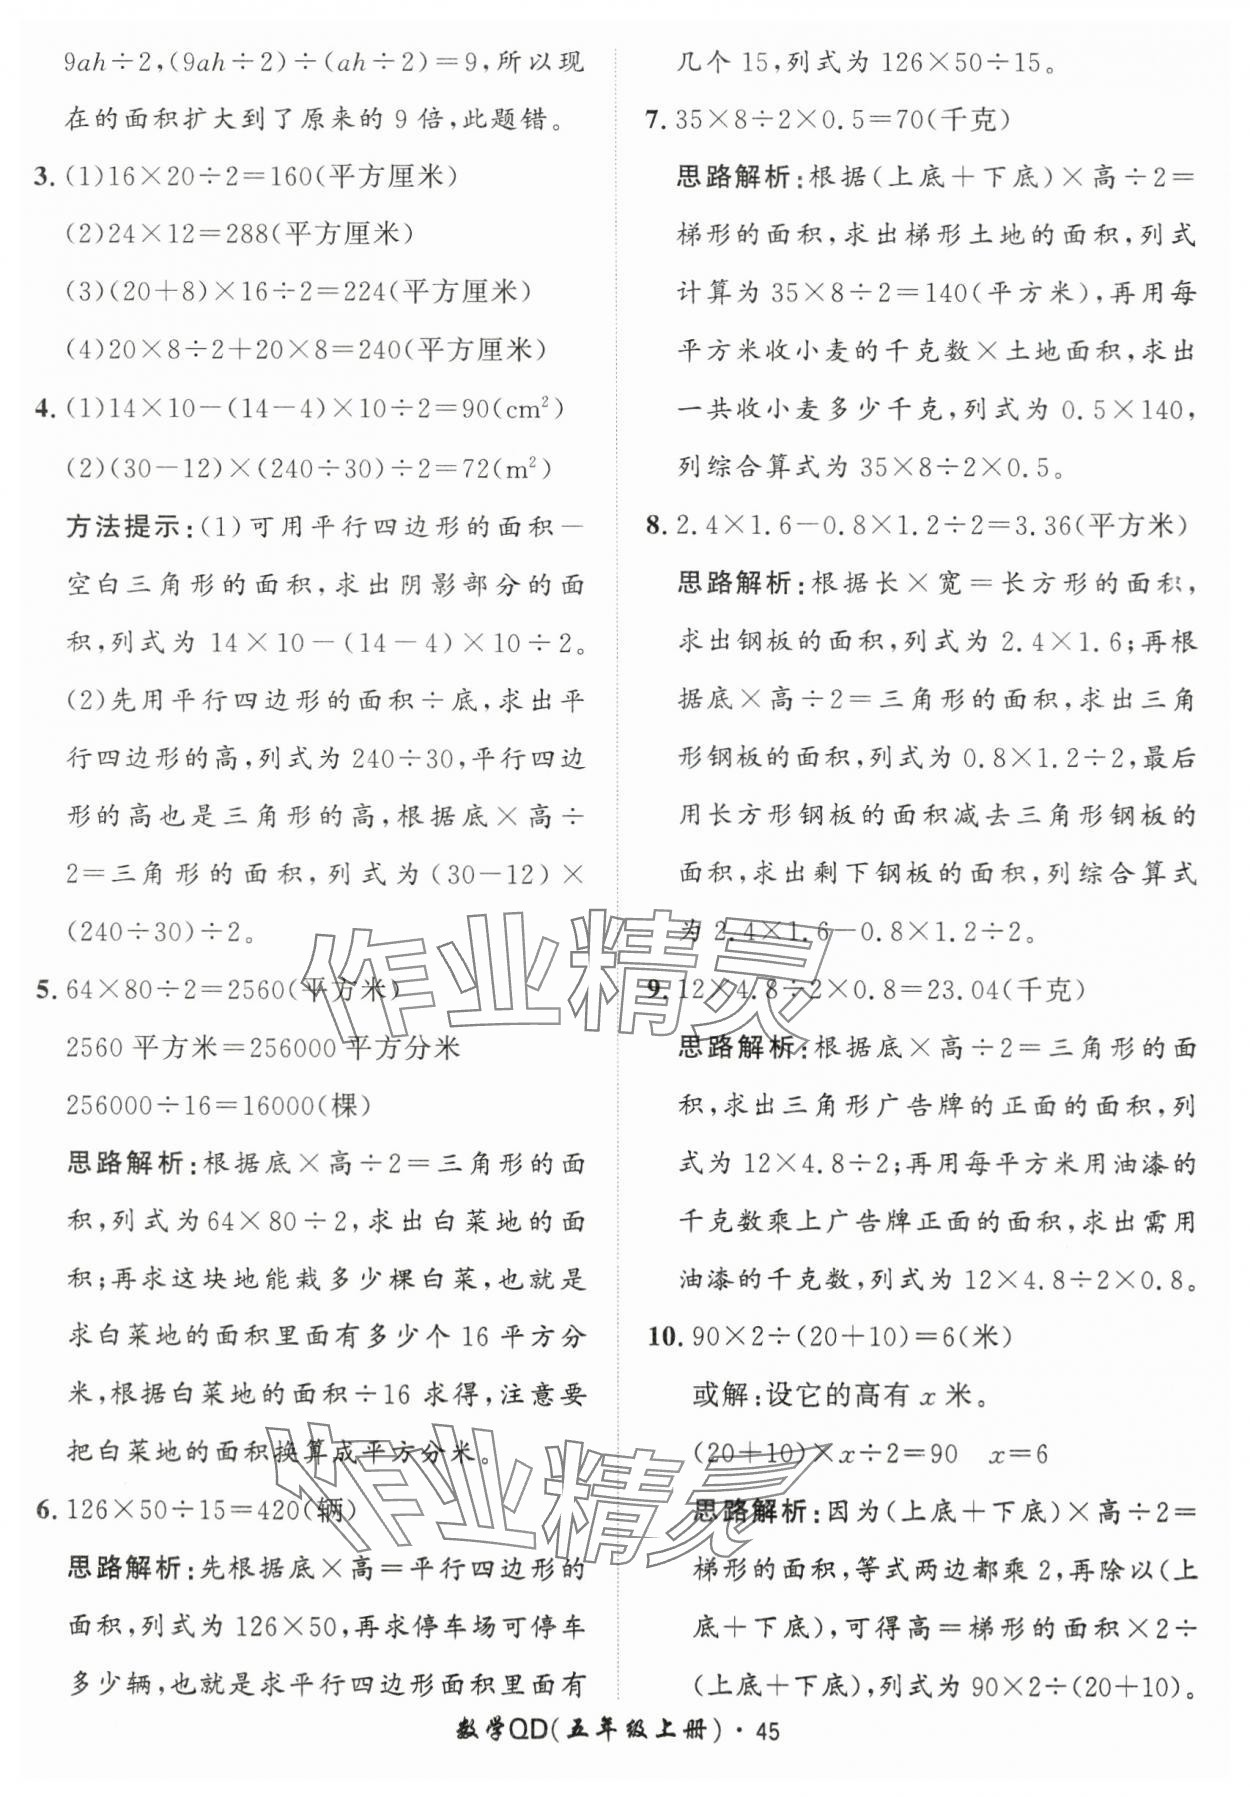 9ah÷2,(9ah÷2)÷(ah÷2)=9,所以现
在的面积扩大到了原来的9倍,此题错。
3. (1)16×20÷2=160(平方厘米)
(2)24×12=288(平方厘米)
(3)(20+8)×16÷2=224(平方厘米)
(4)20×8÷2+20×8=240(平方厘米)
4. (1)14×10-(14-4)×10÷2=90(cm²)
(2)(30-12)×(240÷30)÷2=72(m²)
方法提示:(1)可用平行四边形的面积-
空白三角形的面积,求出阴影部分的面
积,列式为 14×10-(14-4)×10÷2。
(2)先用平行四边形的面积÷底,求出平
行四边形的高,列式为240÷30,平行四边
形的高也是三角形的高,根据底×高÷
2=三角形的面积,列式为(30-12)×
(240÷30)÷2。
5. 64×80÷2=2560(平方米)
2560平方米=256000平方分米
256000÷16=16000(棵)
思路解析:根据底×高÷2=三角形的面
积,列式为64×80÷2,求出白菜地的面
积;再求这块地能栽多少棵白菜,也就是
求白菜地的面积里面有多少个16平方分
米,根据白菜地的面积÷16求得,注意要
把白菜地的面积换算成平方分米。
6. 126×50÷15=420(辆)
思路解析:先根据底×高=平行四边形的
面积,列式为126×50,再求停车场可停车
多少辆,也就是求平行四边形面积里面有
几个15,列式为126×50÷15。
7. 35×8÷2×0.5=70(千克)
思路解析:根据(上底+下底)×高÷2=
梯形的面积,求出梯形土地的面积,列式
计算为35×8÷2=140(平方米),再用每
平方米收小麦的千克数×土地面积,求出
一共收小麦多少千克,列式为0.5×140,
列综合算式为35×8÷2×0.5。
8. 2.4×1.6-0.8×1.2÷2=3.36(平方米)
思路解析:根据长×宽=长方形的面积,
求出钢板的面积,列式为2.4×1.6;再根
据底×高÷2=三角形的面积,求出三角
形钢板的面积,列式为0.8×1.2÷2,最后
用长方形钢板的面积减去三角形钢板的
面积,求出剩下钢板的面积,列综合算式
为2.4×1.6-0.8×1.2÷2。
9. 12×4.8÷2×0.8=23.04(千克)
思路解析:根据底×高÷2=三角形的面
积,求出三角形广告牌的正面的面积,列
式为12×4.8÷2;再用每平方米用油漆的
千克数乘上广告牌正面的面积,求出需用
油漆的千克数,列式为12×4.8÷2×0.8。
10. 90×2÷(20+10)=6(米)
或解:设它的高有x米。
(20+10)×x÷2=90 x=6
思路解析:因为(上底+下底)×高÷2=
梯形的面积,等式两边都乘2,再除以(上
底+下底),可得高=梯形的面积×2÷
(上底+下底),列式为90×2÷(20+10)。
数学QD(五年级上册)·45
作业精灵
作业精灵